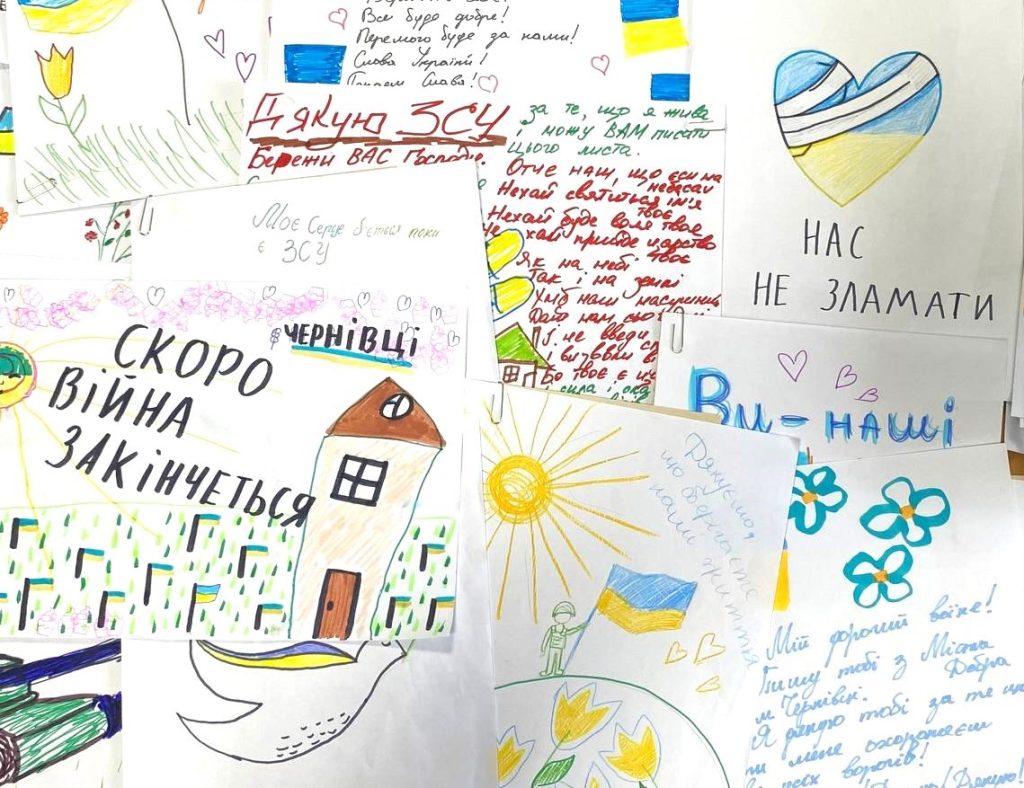 Все буде добре!
Перемога буде за нами!
Слава Україні!
Героям Слава!
Дякую ЗСУ
Бережи ВАС Господь.
за те, що я жива
і можу ВАМ писати
цього листа.
Отче наш, що єси на
небесах
Нехай святиться ім'я
твоє
Нехай буде воля твоє
Нехай прийде царство
твоє
Як на небі
Так і на землі
Хліб наш насушний
Дай нам сьо
І не введи
Бо твоє є
і сила і
Моє Серце б'ється поки
є ЗСУ
НАС
НЕ ЗЛАМАТИ
Ви - наші
ЧЕРНІВЦІ
СКОРО
ВІЙНА
ЗАКІНЧЕТЬСЯ
Дякуємо
що оберігаєте
наші життя
Мій дорогий воїне!
Пишу тобі з Міста
м Чернівці. Добра
Я дякую тобі за те що
ти мене охороняєш
всіх ворогів!
Дякую!